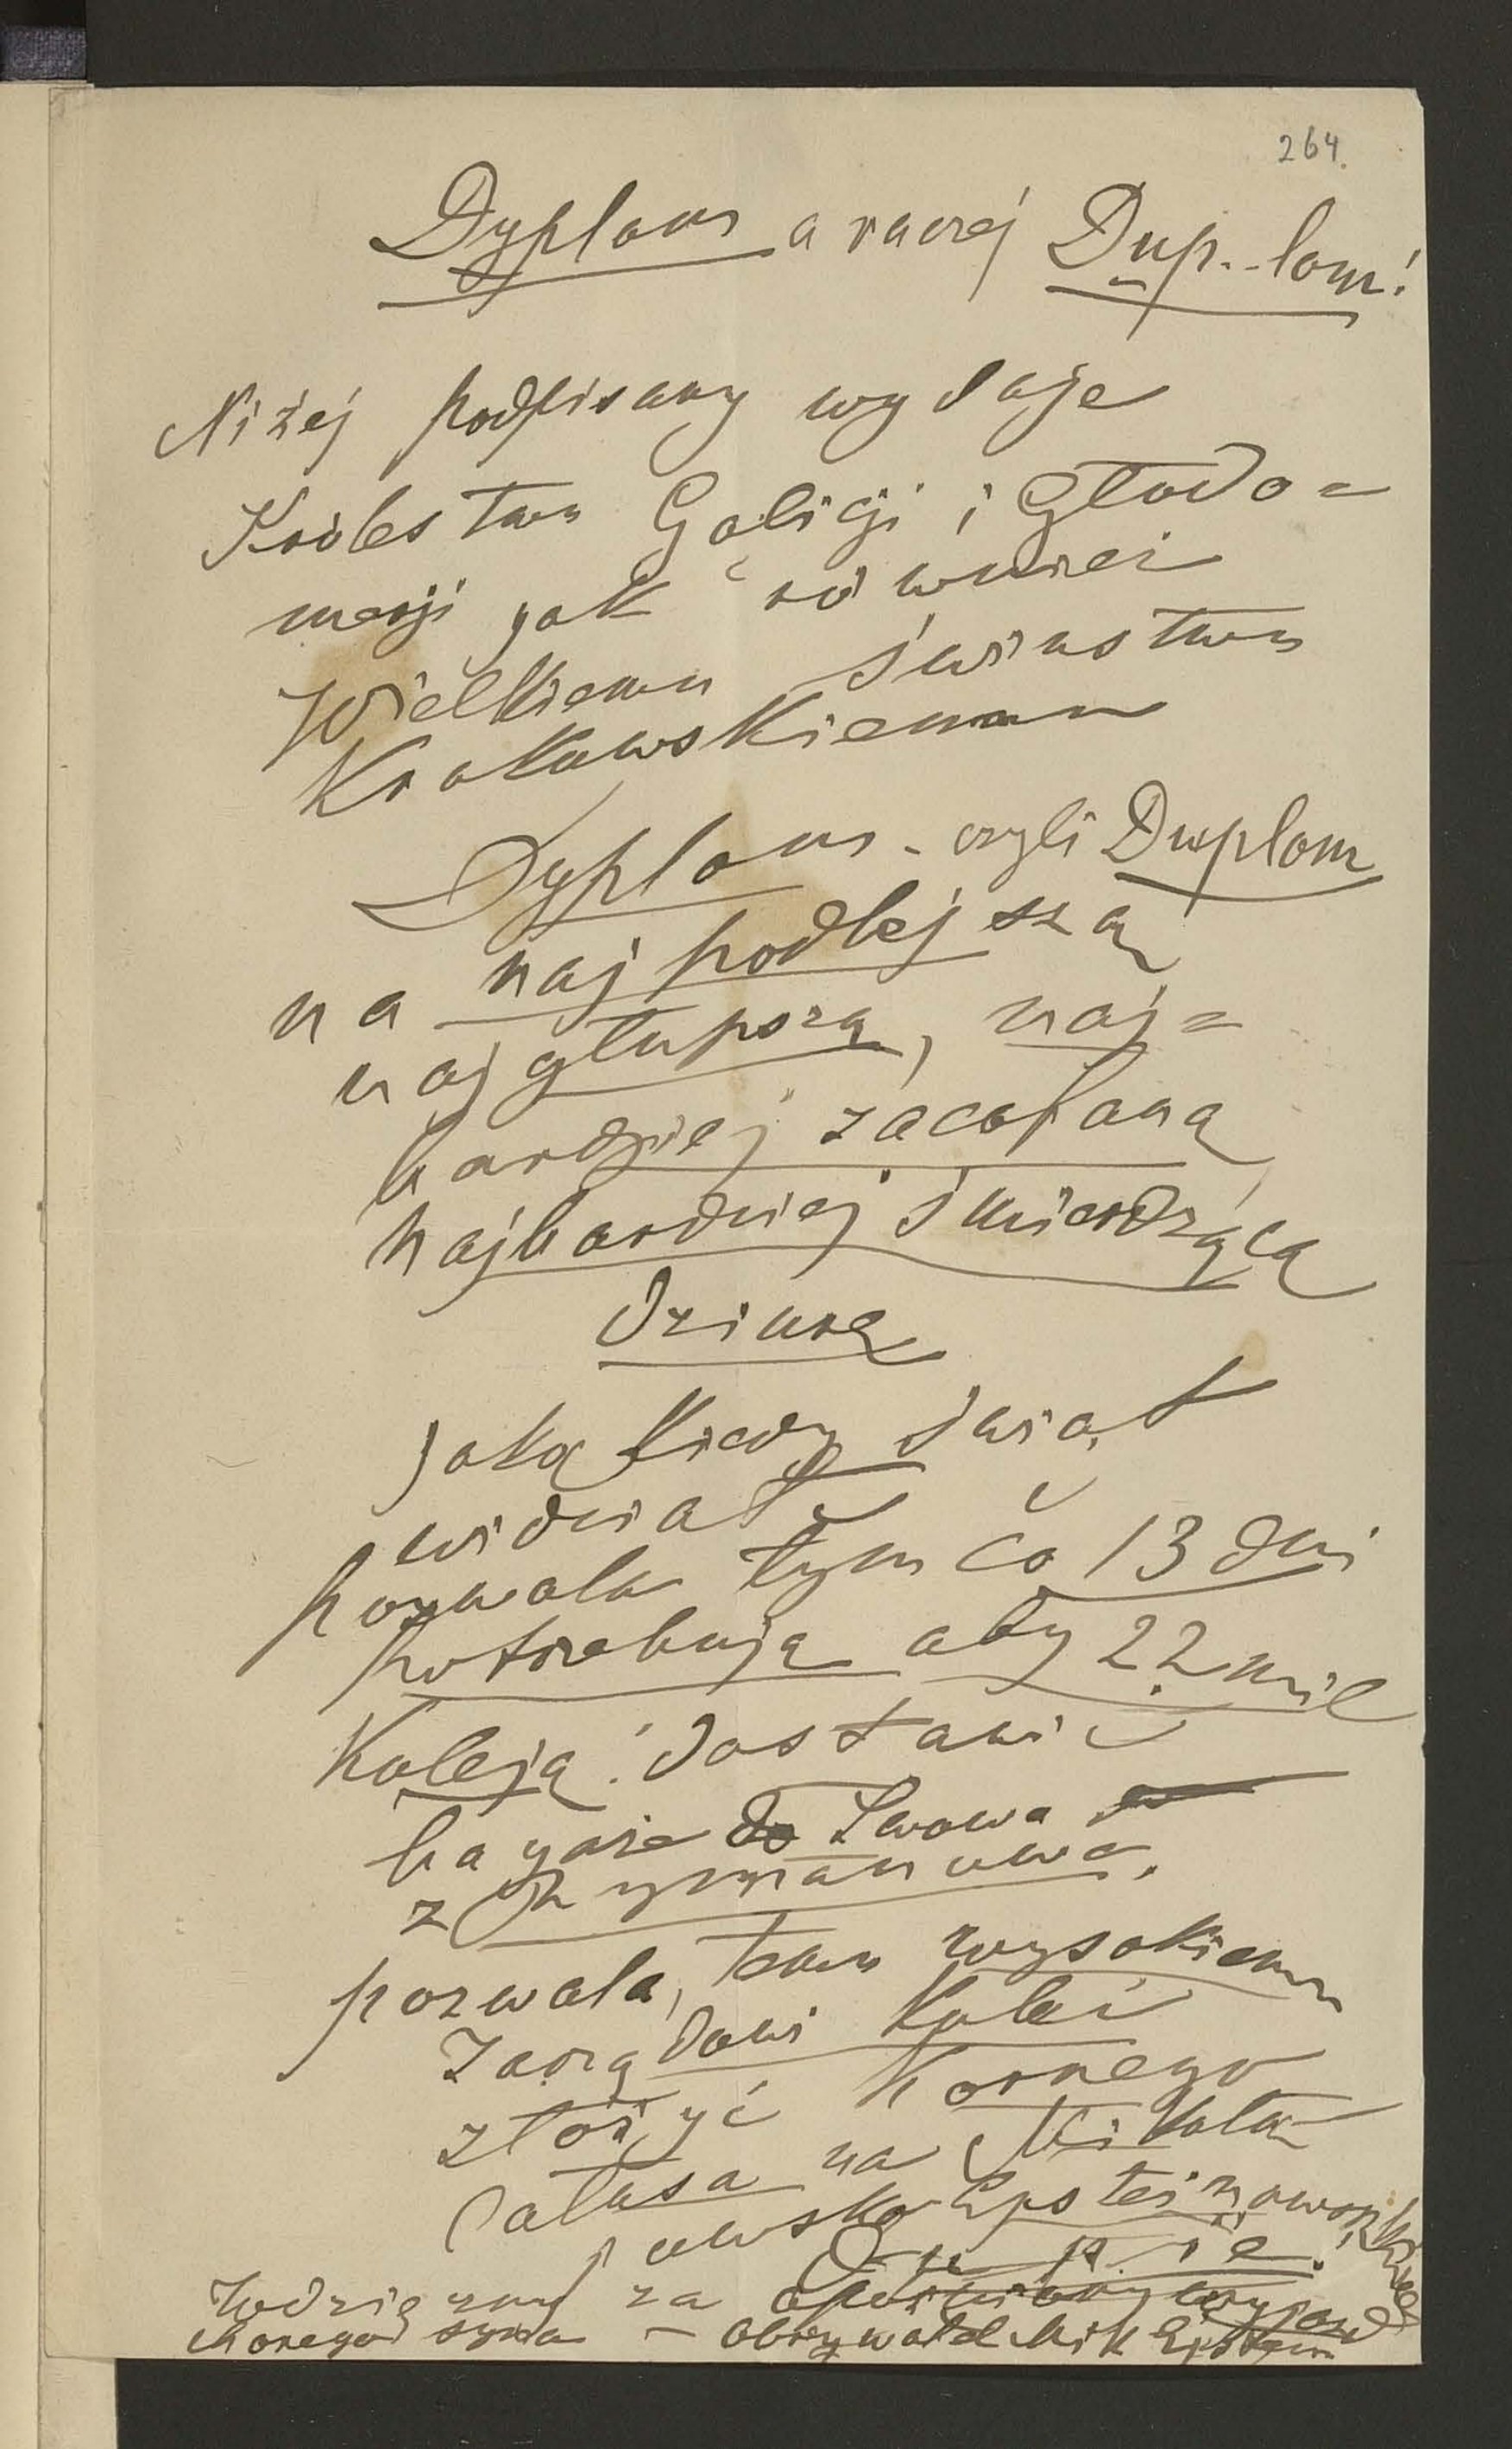 264.
Dyplom a raczej Dup..lom!
Niżej podpisany wydaje
Królestwu Galicji i Głodo=
merji jak również
Wielkiemu świństwu
Krakowskiemu
Dyplom - czyli Duplom
na najpodlejszą
najgłupszą, naj=
bardziej zacofaną
najbardziej śmierdzącą
dziurę
jaką kiedy świat
widział,
pozwala tym co 13 dni
potrzebują aby 22 mil
Koleją! dostawić
bagaże do Lwowa
z Rymanowa.
pozwala, temu wysokiemu
Zarządowi Kolei
złożyć Kornego
Całusa na Mikoła
jowsko Epsteinowskiej
Dupie!
Wdzięczny za wyjazd
chorego syna - Obywatel Mik Epstein